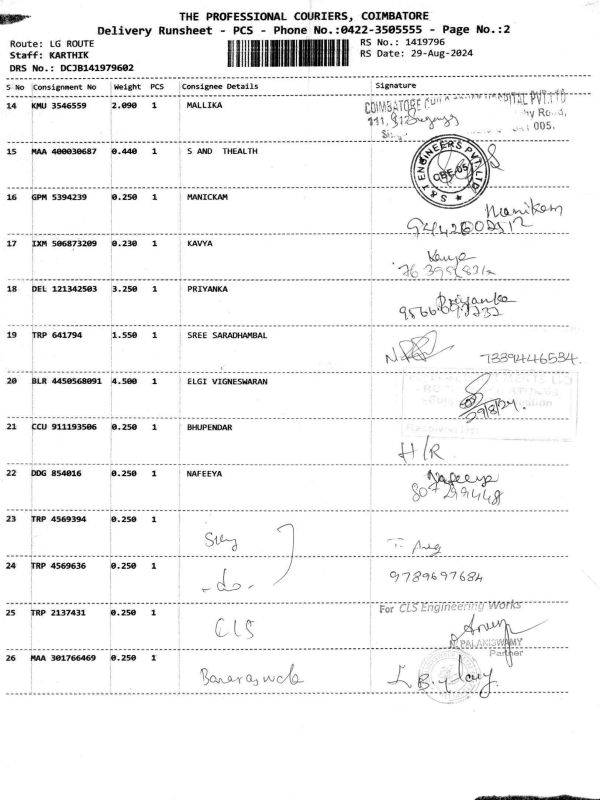 THE PROFESSIONAL COURIERS, COIMBATORE
Delivery Runsheet - PCS - Phone No.:0422-3505555 - Page No.:2
Route: LG ROUTE RS No.: 1419796
Staff: KARTHIK RS Date: 29-Aug-2024
DRS No.: DCJB141979602
S No Consignment No Weight PCS Consignee Details Signature
14 KMU 3546559 2.090 1 MALLIKA
15 MAA 400030687 0.440 1 S AND THEALTH
S & T ENGINEERS PVT. LTD CBE-05
16 GPM 5394239 0.250 1 MANICKAM
Manikam
17 IXM 506873209 0.230 1 KAVYA
Kavya
18 DEL 121342503 3.250 1 PRIYANKA
Priyanka
19 TRP 641794 1.550 1 SREE SARADHAMBAL
7339446534.
20 BLR 4450568091 4.500 1 ELGI VIGNESWARAN
29/8/24.
21 CCU 911193506 0.250 1 BHUPENDAR
H/R
22 DDG 854016 0.250 1 NAFEEYA
Nafeeya
23 TRP 4569394 0.250 1
24 TRP 4569636 0.250 1 -do-
9789697684
25 TRP 2137431 0.250 1 CLS
For CLS Engineering Works
N. PALANISWAMY
Partner
26 MAA 301766469 0.250 1